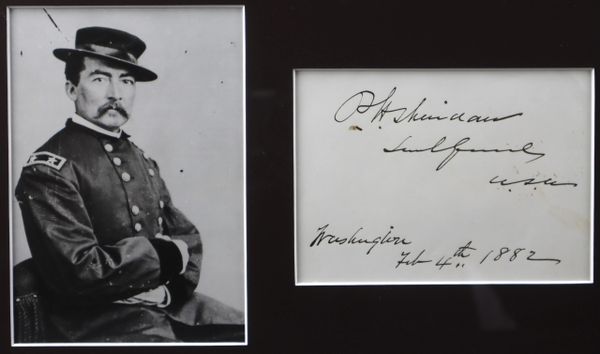 P. H. Sheridan
Lieut General
U.S.A.
Washington
Feb 4th 1882